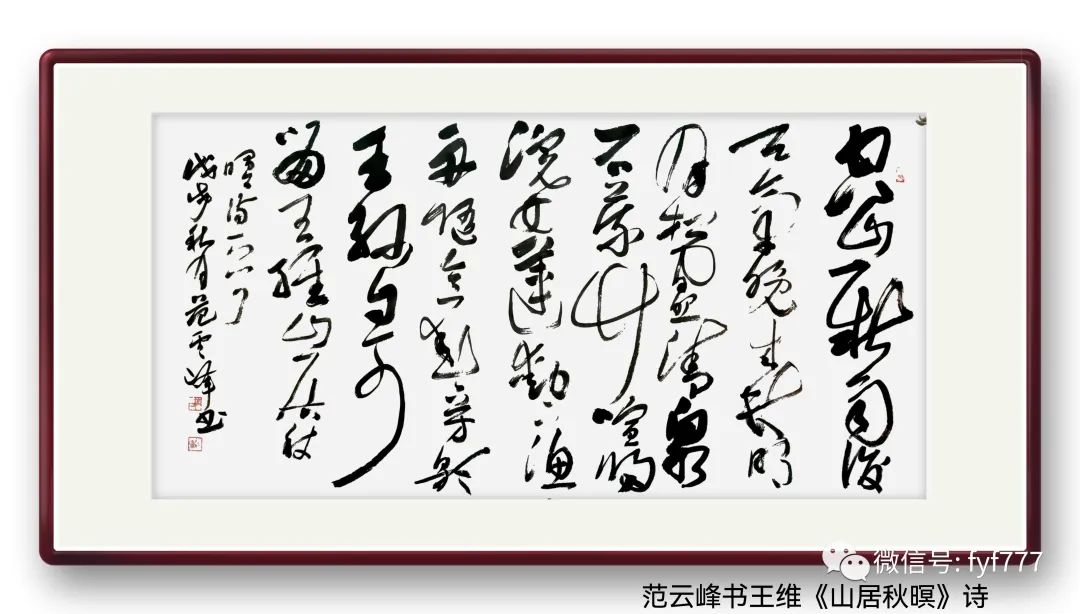 空山新雨後
天氣晚來秋明
月松間照清泉
石上流竹喧歸
浣女蓮動下漁
舟隨意春芳歇
王孫自可
留王維山居秋
暝詩一首
秋月范雲峰書
微信号: fyf777
范云峰书王维《山居秋暝》诗